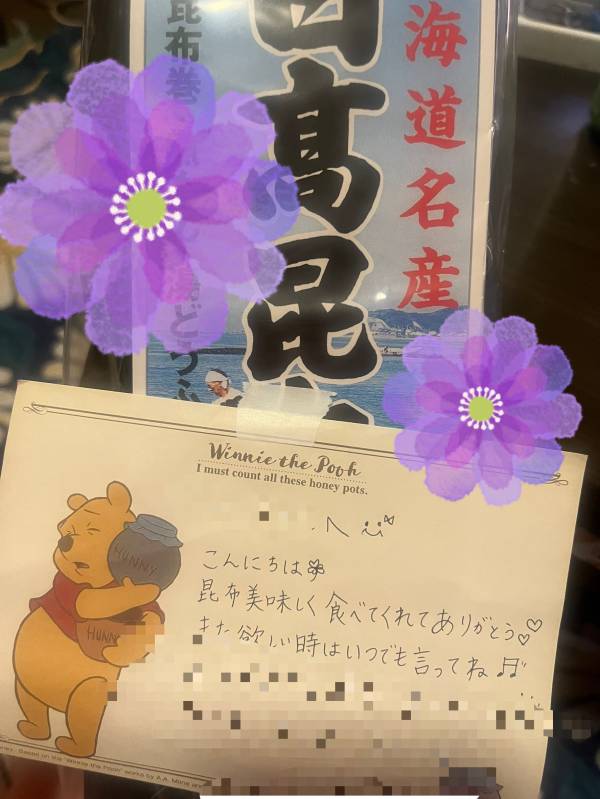 海道名産
高昆
昆布巻
どうふ
Winnie the Pooh
I must count all these honey pots.
へ
こんにちは
昆布美味しく食べてくれてありがとう♡♡
また欲しい時はいつでも言ってね♬
HUNNY
HUNNY
Based on the "Winnie the Pooh" works by A.A. Milne and